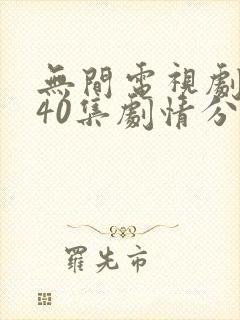 無間電視劇
40集劇情分
羅先市